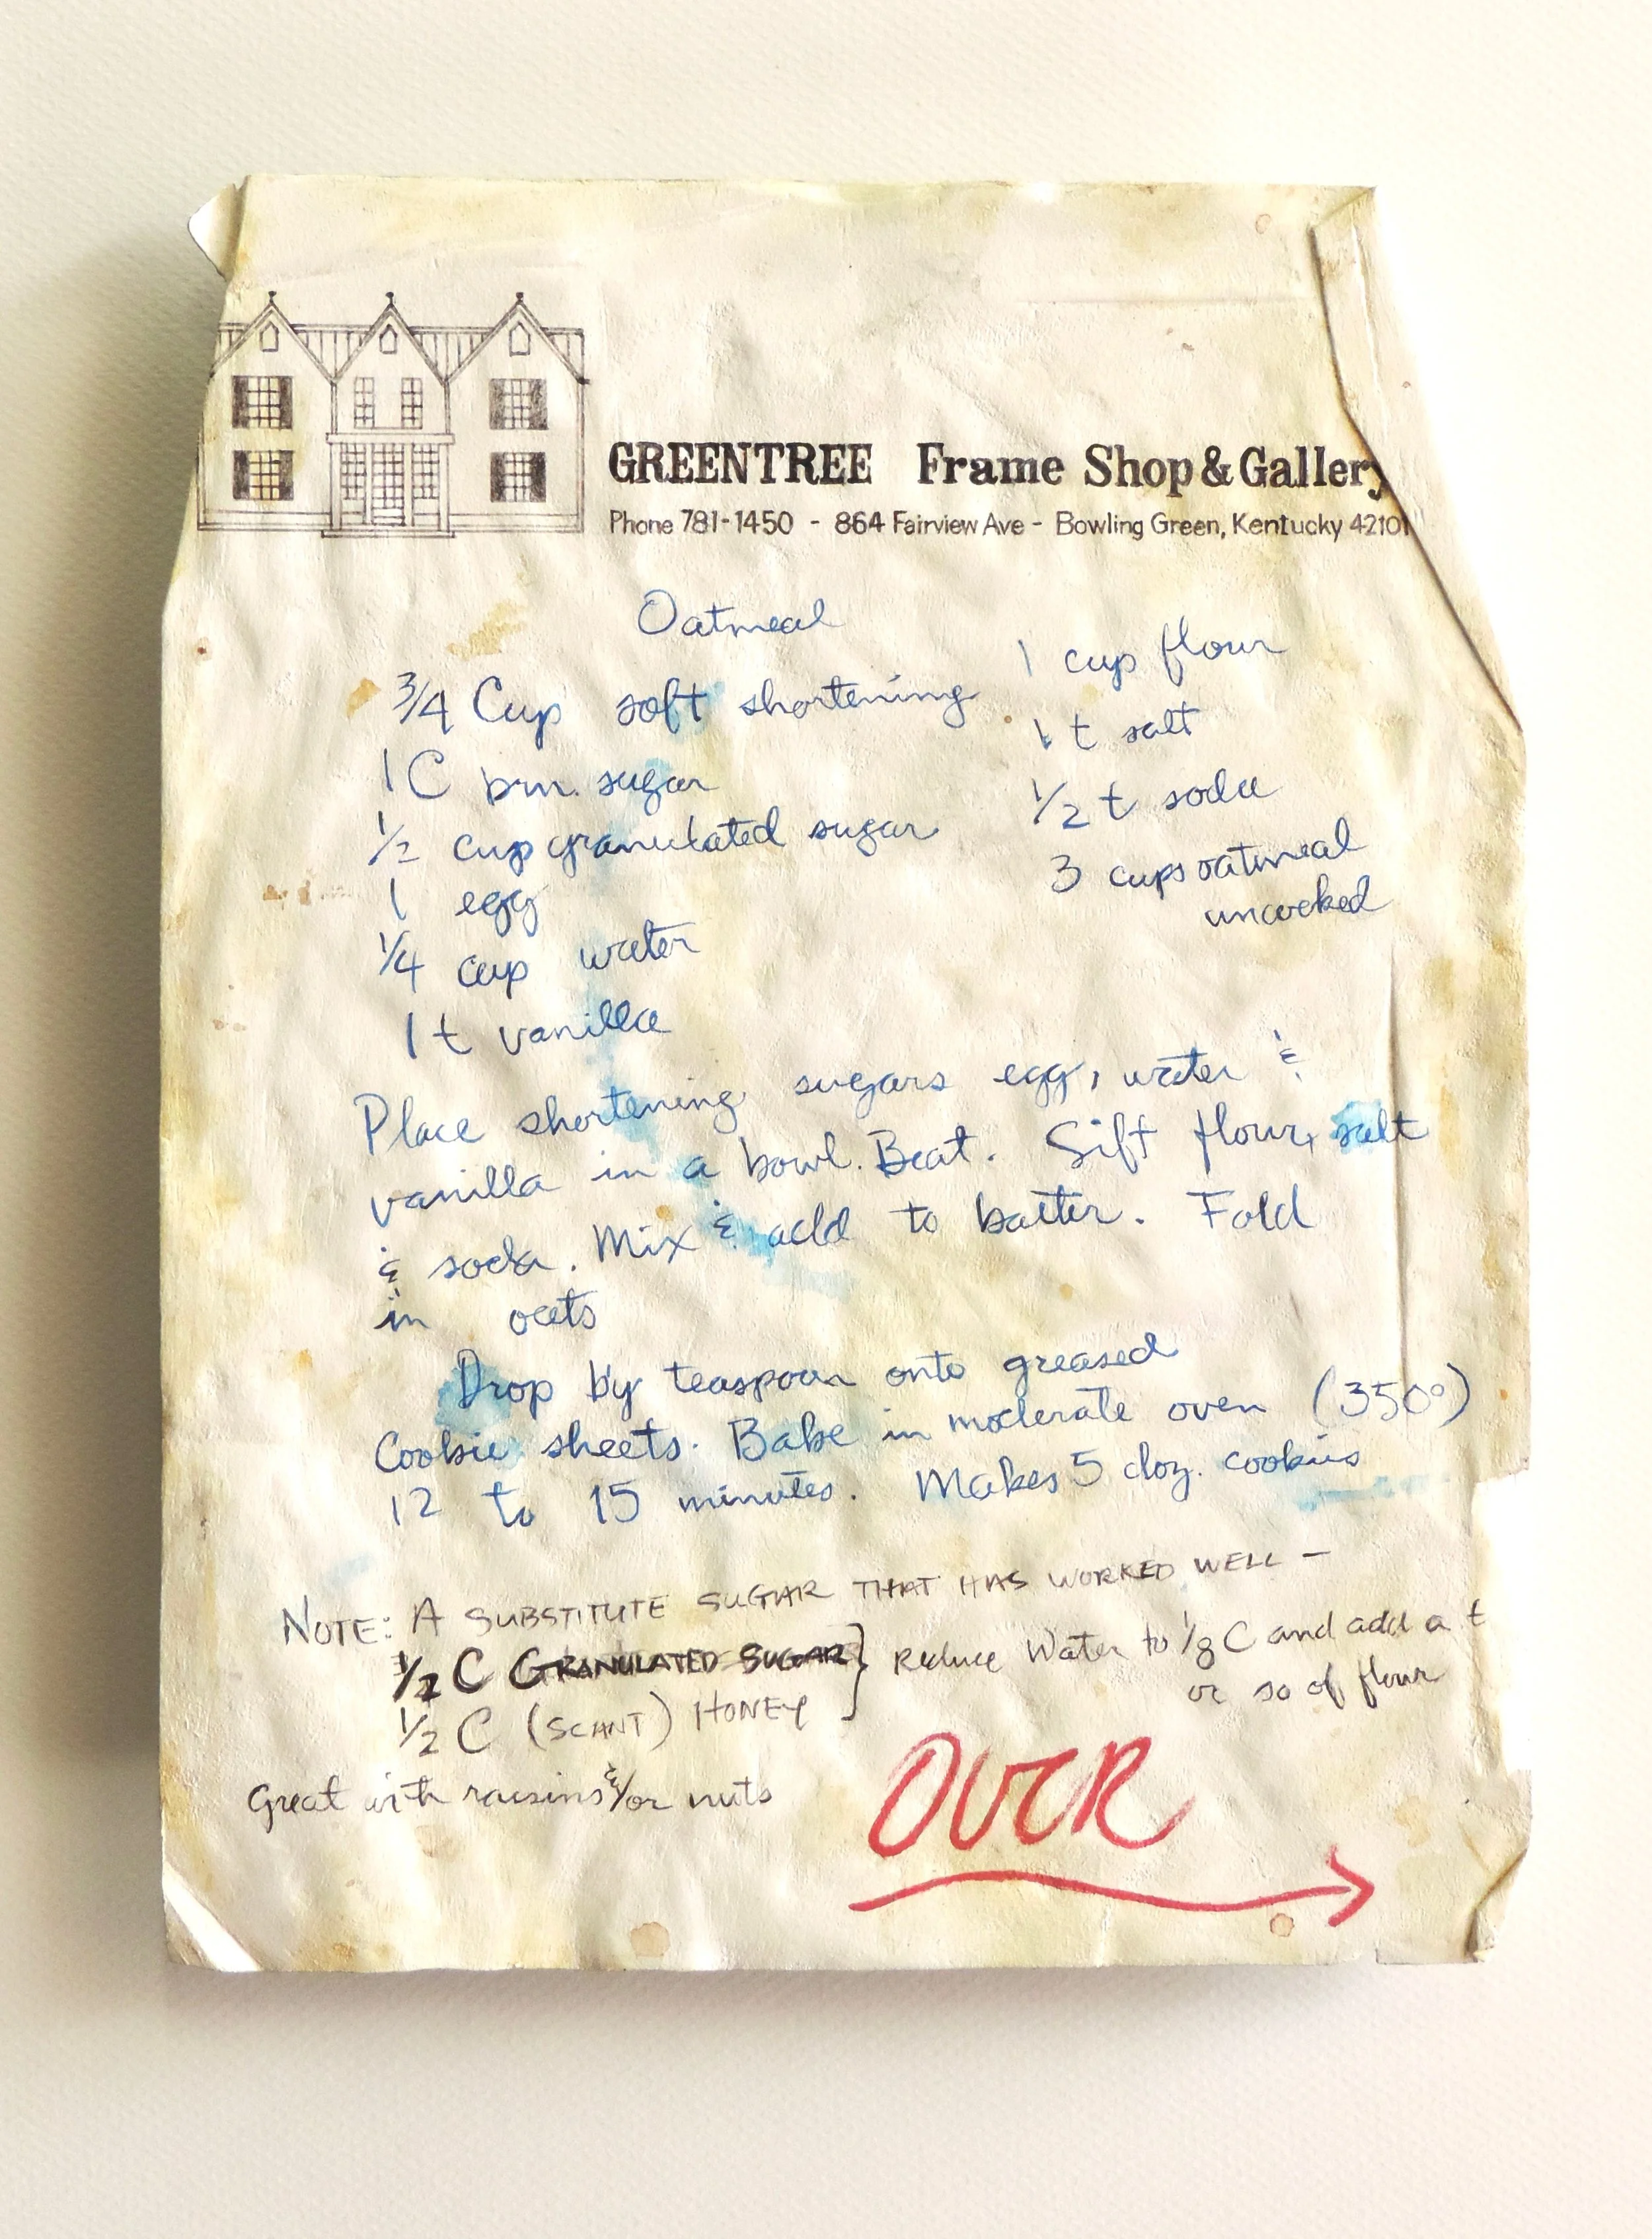 GREENTREE Frame Shop & Gallery
Phone 781-1450 - 864 Fairview Ave - Bowling Green, Kentucky 42101
Oatmeal
3/4 Cup soft shortening
1 C brn. sugar
1/2 cup granulated sugar
1 egg
1/4 cup water
1 t vanilla
1 cup flour
1 t salt
1/2 t soda
3 cups oatmeal
uncooked
Place shortening sugars egg, water &
vanilla in a bowl. Beat. Sift flour, salt
& soda. Mix & add to batter. Fold
in oats
Drop by teaspoon onto greased
Cookie sheets. Bake in moderate oven (350°)
12 to 15 minutes. Makes 5 doz. cookies
NOTE: A SUBSTITUTE SUGAR THAT HAS WORKED WELL —
1/2 C GRANULATED SUGAR } Reduce Water to 1/8 C and add a t
1/2 C (SCANT) HONEY } or so of flour
Great with raisins &/or nuts
OVER